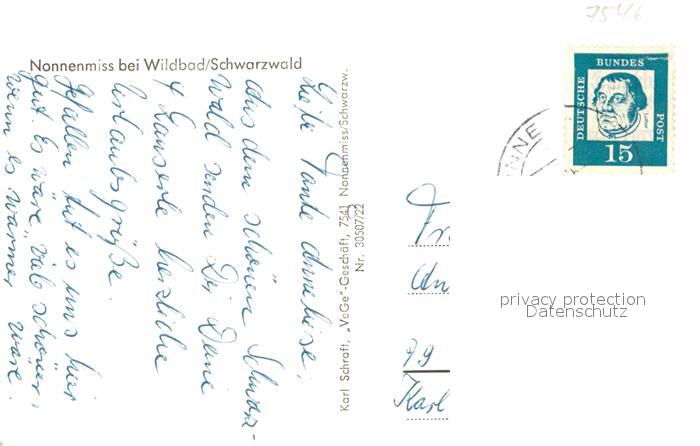 7546
Nonnenmiss bei Wildbad/Schwarzwald
Liebe Tante Anneliese,
Aus dem schönen Schwarz-
wald senden Dir Deine
4 herzliche
Urlaubsgrüße.
Gefallen tut es uns hier
gut. Es wäre viel schöner,
wenn es wärmer wäre.
Karl Schraft, „VeGe"-Geschäft, 7541 Nonnenmiss/Schwarzw.
Nr. 30507/22
DEUTSCHE
BUNDES
POST
15
Luther
NNE
Fr
An
79
Karl
privacy protection
Datenschutz